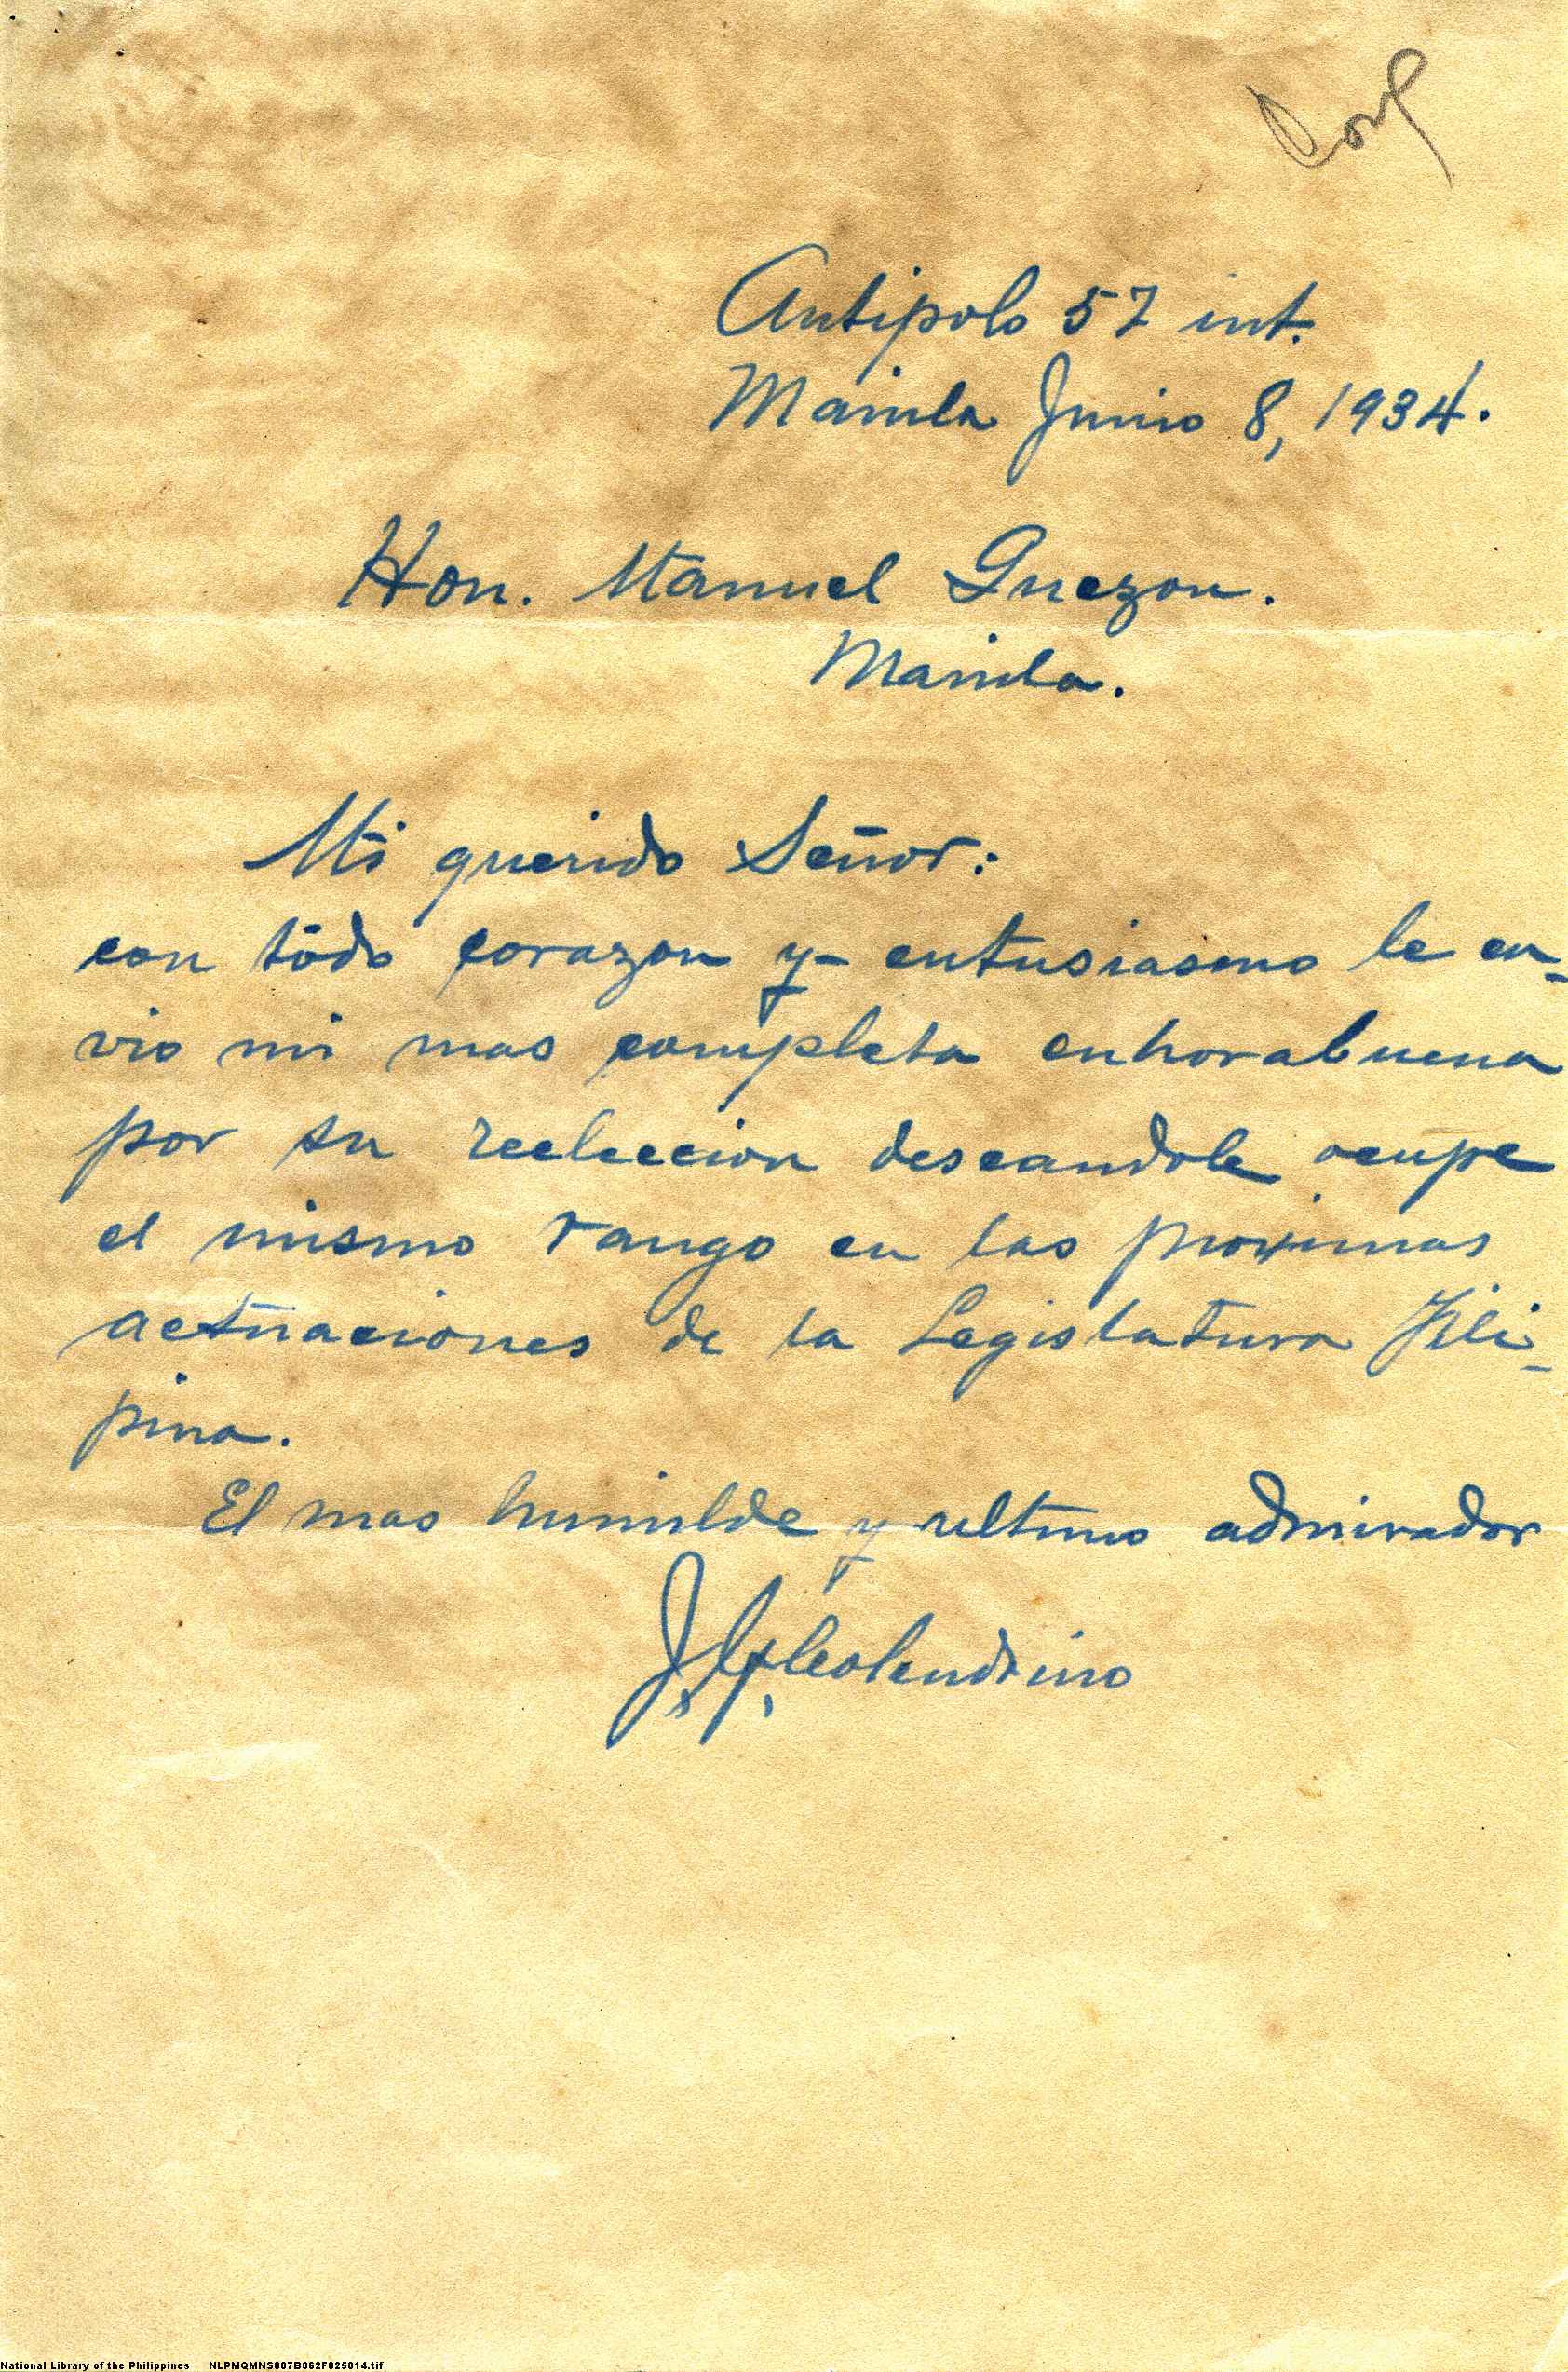 Antipolo 57 int.
Manila Junio 8, 1934.
Hon. Manuel Quezon.
Manila.
Mi querido Señor:
con todo corazon y entusiasmo le en-
vio mi mas completa enhorabuena
por su reeleccion deseandole ocupe
el mismo rango en las proximas
actuaciones de la Legislatura Fili-
pina.
El mas humilde y ultimo admirador
National Library of the Philippines NLPMQMNS007B062F025014.tif